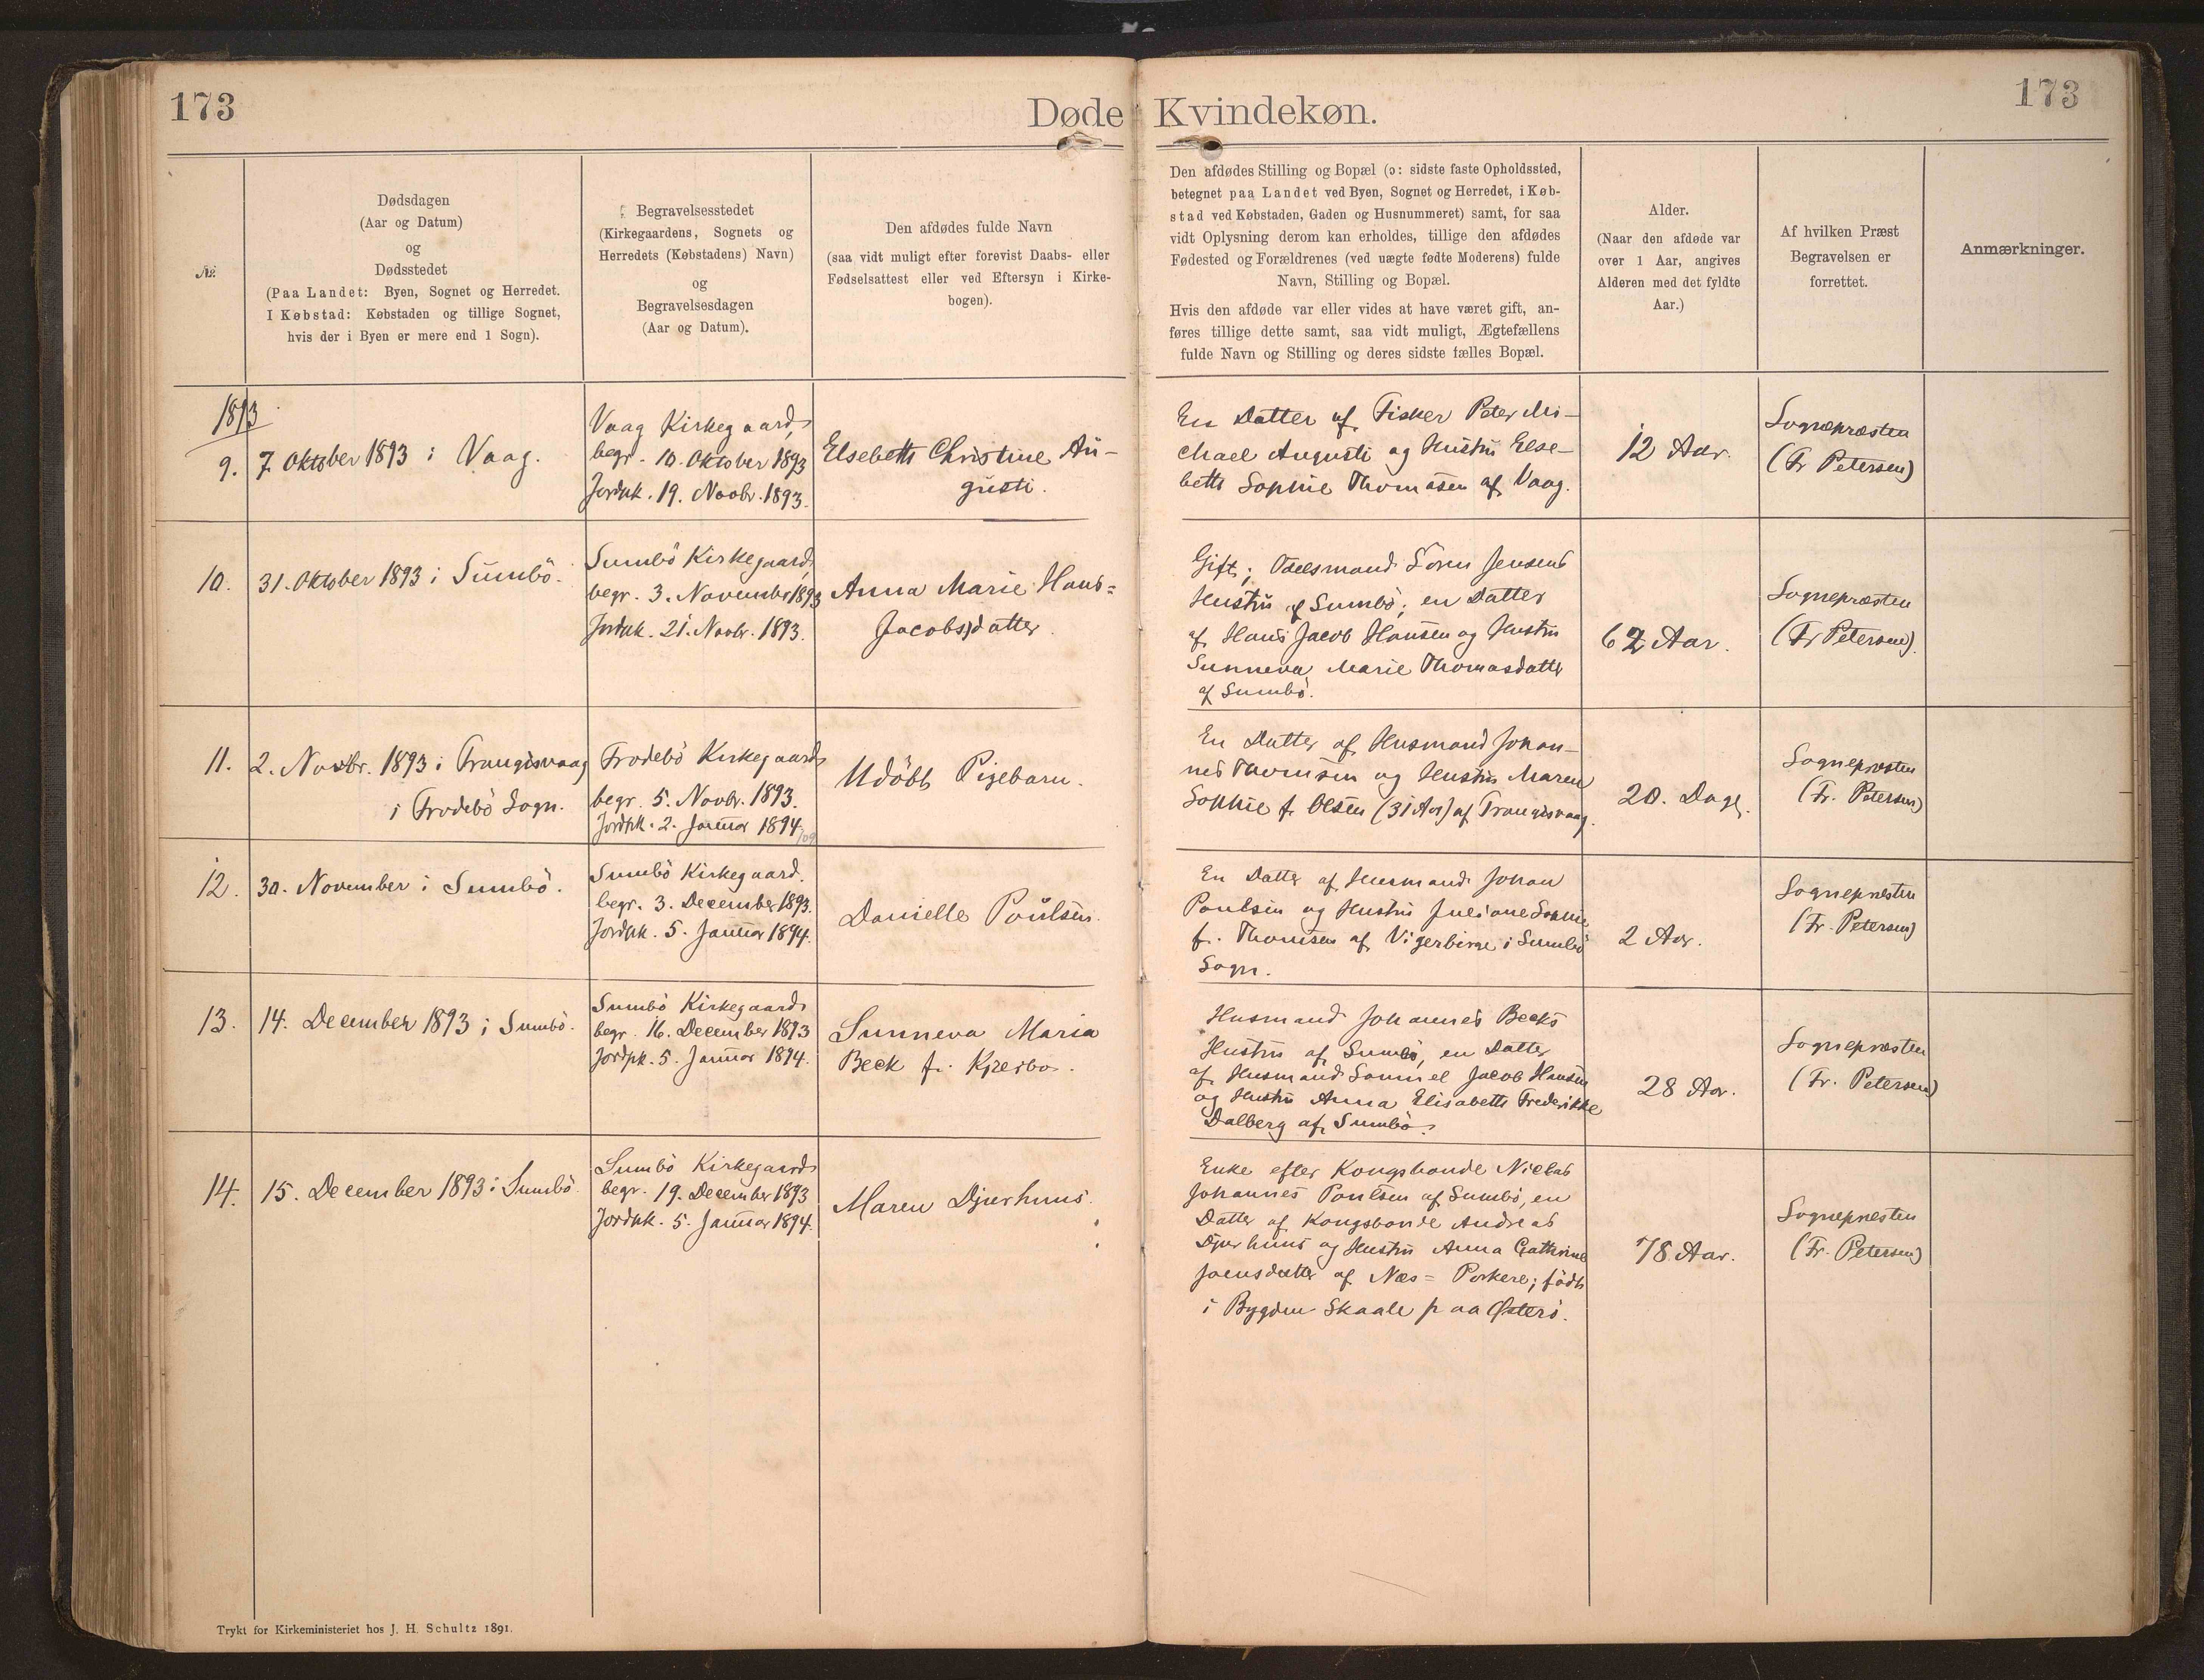 173
Døde Kvindekøn.
173
№
Dødsdagen
(Aar og Datum)
og
Dødsstedet
(Paa Landet: Byen, Sognet og Herredet.
I Købstad: Købstaden og tillige Sognet,
hvis der i Byen er mere end 1 Sogn).
Begravelsesstedet
(Kirkegaardens, Sognets og
Herredets (Købstadens) Navn)
og
Begravelsesdagen
(Aar og Datum).
Den afdødes fulde Navn
(saa vidt muligt efter forevist Daabs- eller
Fødselsattest eller ved Eftersyn i Kirke-
bogen).
Den afdødes Stilling og Bopæl (ɔ: sidste faste Opholdssted,
betegnet paa Landet ved Byen, Sognet og Herredet, i Køb-
stad ved Købstaden, Gaden og Husnummeret) samt, for saa
vidt Oplysning derom kan erholdes, tillige den afdødes
Fødested og Forældrenes (ved uægte fødte Moderens) fulde
Navn, Stilling og Bopæl.
Hvis den afdøde var eller vides at have været gift, an-
føres tillige dette samt, saa vidt muligt, Ægtefællens
fulde Navn og Stilling og deres sidste fælles Bopæl.
Alder.
(Naar den afdøde var
over 1 Aar, angives
Alderen med det fyldte
Aar.)
Af hvilken Præst
Begravelsen er
forrettet.
Anmærkninger.
1893
9.
7. Oktober 1893 i Vaag.
Vaag Kirkegaard,
begr. 10. Oktober 1893
Jordpk. 19. Novbr. 1893.
Elsebeth Christine Au-
gusti.
En Datter af Fisker Peter Mi-
chael Augusti og Hustru Else-
beth Sophie Thomasen af Vaag.
12 Aar.
Sognepræsten
(Fr Petersen)
10.
31. Oktober 1893 i Sumbö.
Sumbö Kirkegaard,
begr. 3. November 1893
Jordpk. 21. Novbr. 1893.
Anna Marie Hans=
Jacobsdatter.
Gift; Odelsmand Sören Jensens
Hustru af Sumbö; en Datter
af Hans Jacob Hansen og Hustru
Sunneva Marie Thomasdatter
af Sumbö.
62 Aar.
Sognepræsten
(Fr Petersen).
11.
2. Novbr. 1893 i Trangisvaag
i Frodebö Sogn.
Frodebö Kirkegaard
begr. 5. Novbr. 1893.
Jordpk. 2. Januar 1894.
Udöbt Pigebarn.
En Datter af Husmand Johan-
nes Thomsen og Hustru Maren
Sophie f. Olsen (31 Aar) af Trangisvaag.
20. Dage.
Sognepræsten
(Fr. Petersen)
12.
30. November i Sumbö.
Sumbö Kirkegaard.
begr. 3. December 1893.
Jordpk. 5. Januar 1894.
Danielle Poulsen.
En Datter af Husmand Johan
Poulsen og Hustru Juliane Sophie
f. Thomsen af Vigerbirge i Sumbö
Sogn.
2 Aar.
Sognepræsten
(Fr. Petersen)
13.
14. December 1893 i Sumbö.
Sumbö Kirkegaard
begr. 16. December 1893
Jordpk. 5. Januar 1894.
Sunneva Maria
Beck f. Kjærbo.
Husmand Johannes Becks
Hustru af Sumbö, en Datter
af Husmand Samuel Jacob Hansen
og Hustru Anna Elisabeth Frederikke
Dalberg af Sumbö.
28 Aar.
Sognepræsten
(Fr. Petersen)
14.
15. December 1893 i Sumbö.
Sumbö Kirkegaard
begr. 19. December 1893
Jordpk. 5. Januar 1894.
Maren Djurhuus.
Enke efter Kongsbonde Niclas
Johannes Poulsen af Sumbö, en
Datter af Kongsbonde Andreas
Djurhuus og Hustru Anna Cathrine
Joensdatter af Næs = Porkere; födt
i Bygden Skaale paa Østerö.
78 Aar.
Sognepræsten
(Fr. Petersen)
Trykt for Kirkeministeriet hos J. H. Schultz 1891.